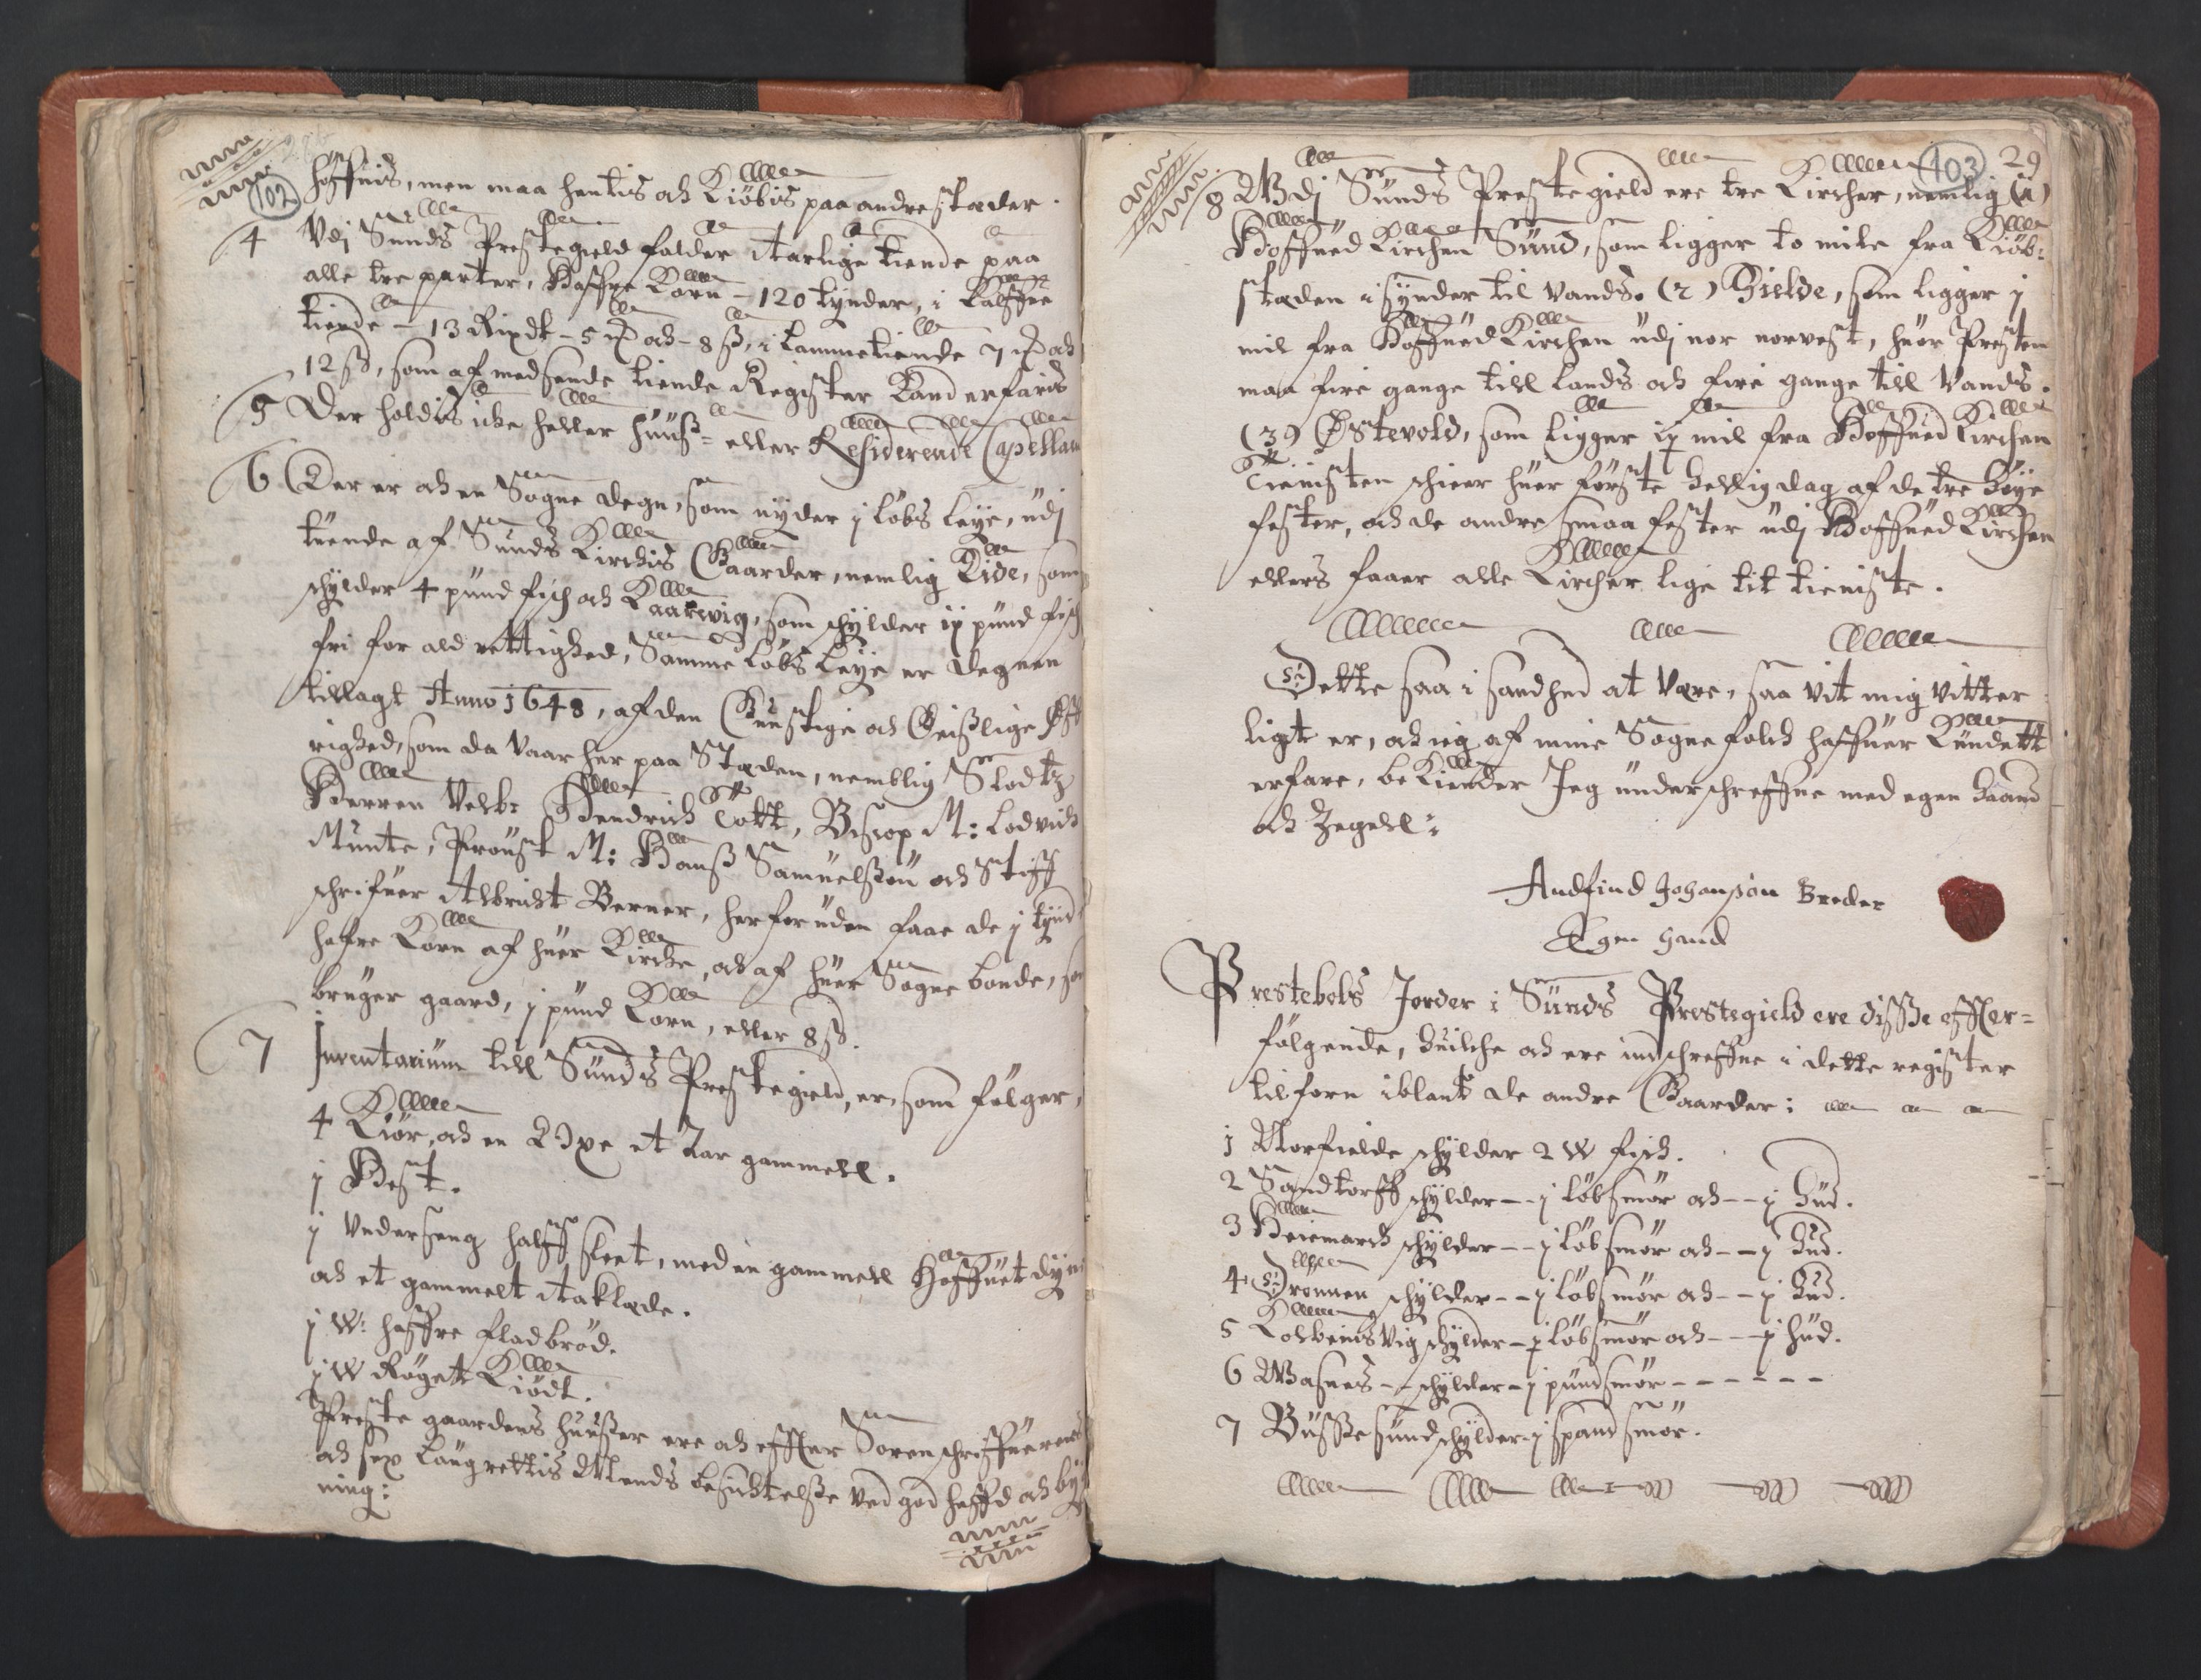 102
höffuis, men maa hentis och Kiöbis paa andre stæder.
4 Udj Sunds Prestegield falder Aarlige tiende paa
alle tre parter, Haffre Korn - 120 tynder, i Kalffue
tiende - 13 Rixdlr - 5 ₰ och - 8 ß, i Lammetiende 7 ₰ och
12 ß, som af medsende tiende Register Kand erfaris
5 Der holdis icke heller huuß= eller Residerende Capellan
6 Der er och en Sogne degn, som nyder j löbs leye, udj
tuende af Sunds Kirckis Gaarder, nemlig Kive, som
schylder 4 pund fisch och Kaarvig, som schylder ij pund fisch
fri for ald rettighed, Samme Löbs leye er degnen
tillagt Anno 1648, af den Gunstige och Geistlige Öff
righed, som da vaar her paa Stæden, nemblig Slodtz
Herren Velb: Hendrich Tott, Biscop M: Lodvich
Munte, Proust M: Hanß Samuelßøn och Stift
schrifuer Albricht Berner, her foruden faar de j tynd
hafre Korn af huer Kircke, och af huer Sogne bonde, som
bruger gaard, j pund Korn, eller 8 ß.
7 Inventarium till Sunds Prestegield, er, som fölger,
4 Kiör, och en Oxe et Aar gammell.
j Hest.
j Underseng halff sleet, med en gammell Hoffuet dyne
och et gammelt Aaklæde.
j W: haffre fladbröd.
j W Röget Kiödt.
Preste gaardens huußer ere och effter Sorenschriffuerens
och sex Laugrettis Mends besichtelße ved god heffd och byg
ning:
103 29
8 Udj Sunds Prestegield ere tre Kircher, nemlig (1)
Hoffued Kirchen Sund, som ligger to mile fra Kiöb:
stæden i synder til Vands. (2) Gielde, som ligger j
mil fra Hoffued Kirchen udj nor norvest, huor Presten
maa fire gange till Lands och fire gange till Vands.
(3) Østevold, som ligger ij mil fra Hoffued Kirchen
Tienisten schier huer förste hellig dag af de tre Höye
fester, och de andre smaa fester udj Hoffued Kirchen
ellers faaer alle Kircher lige tit tieniste.
Dette saa i sandhed at være, saa vit mig vitter
ligt er, och ieg af mine Sogne folch haffuer Kundett
erfare, beKiender Jeg underschreffne med egen Haand
och Zegell:
Andfind Johanßön Breder
Egen Hand
Prestebols Jorder i Sunds Prestegield ere disße effter=
fölgende, huilche och ere indschreffne i dette register
tilforn iblant de andre Gaarder:
1 Norfielde schylder 2 W fisch.
2 Sandtorff schylder -- j löb smör och -- j Hud.
3 Heiemarch schylder -- j löb smör och -- j Hud.
4 Drönnen schylder -- j löb smör och -- j Hud.
5 Kolbeinsvig schylder - j löb smör och --- j hud.
6 Vasnes -- schylder - j pund smör - - - - - -
7 Busße sund schylder j spand smör.